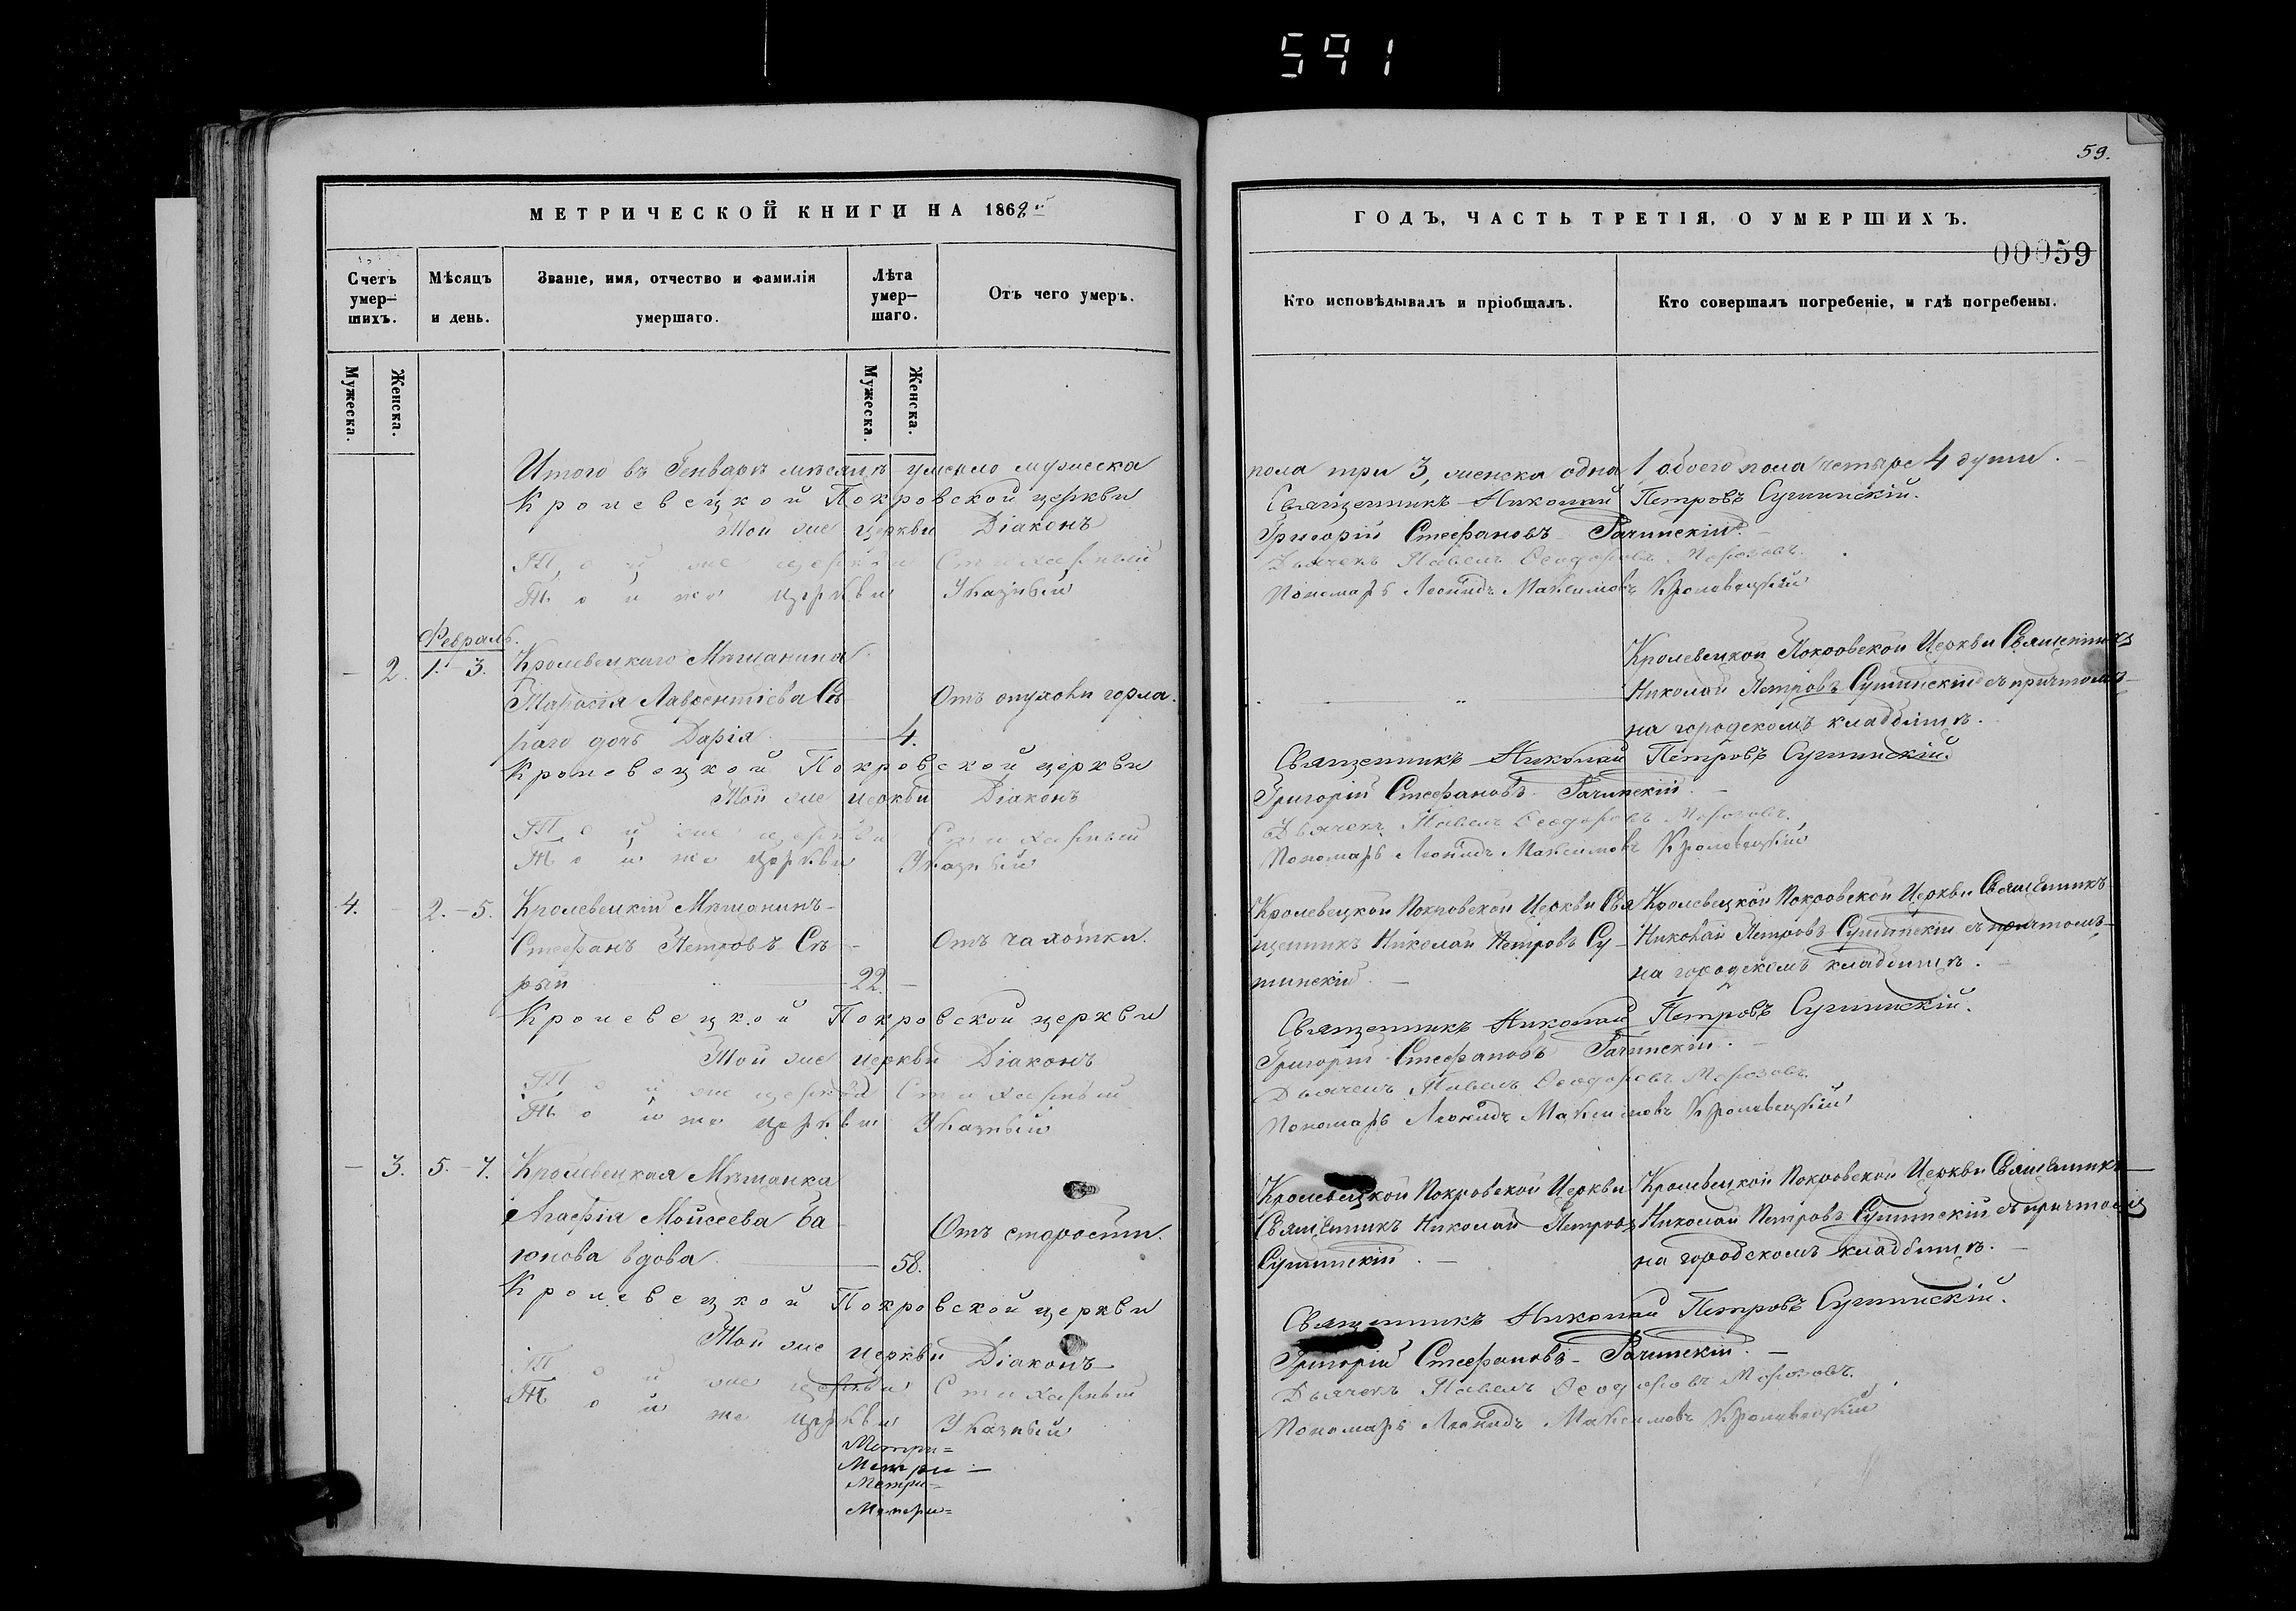 591
МЕТРИЧЕСКОЙ КНИГИ НА 1862й
Счетъ умер-шихъ.
Мѣсяцъ и день.
Званіе, имя, отчество и фамилія умершаго.
Лѣта умер-шаго.
Отъ чего умеръ.
Мужеска.
Женска.
Мужеска.
Женска.
Итого въ Генварѣ мѣсяцѣ умерло мужеска
Кролевецкой Покровской церкви
Той же церкви Діаконъ
Той же церкви Стихарный
Той же церкви Указный
Февраль.
— 2. 1.-3. Кролевецкаго Мѣщанина
Тарасія Лаврентіева Сѣ-
раго дочь Дарія 4. Отъ опухоли горла.
Кролевецкой Покровской церкви
Той же церкви Діаконъ
Той же церкви Стихарный
Той же церкви Указный
4. 2.-5. Кролевецкій Мѣщанинъ
Стефанъ Петровъ Сѣ- Отъ чахотки.
рый 22. —
Кролевецкой Покровской церкви
Той же церкви Діаконъ
Той же церкви Стихарный
Той же церкви Указный
— 3. 5.-7. Кролевецкая Мѣщанка
Агафія Мойсеева Ба- Отъ старости.
юнова вдова 58.
Кролевецкой Покровской церкви
Той же церкви Діаконъ
Той же церкви Стихарный
Той же церкви Указный
Метри=
Метри—
Метри=
Метри=
59.
ГОДЪ, ЧАСТЬ ТРЕТІЯ, О УМЕРШИХЪ.
00059
Кто исповѣдывалъ и пріобщалъ.
Кто совершалъ погребеніе, и гдѣ погребены.
пола три 3, женска одна 1, обоего пола четыре 4 души.
Священникъ Николай Петровъ Сушинскій.
Григорій Стефановъ Рачинскій.
Дьячекъ Павелъ Ѳеодоровъ Морозовъ.
Пономарь Леонидъ Максимовъ Кролевецкій
Кролевецкой Покровской Церкви Священникъ
Николай Петровъ Сушинскій съ причтомъ
на городскомъ кладбищѣ.
Священникъ Николай Петровъ Сушинскій.
Григорій Стефановъ Рачинскій.
Дьячекъ Павелъ Ѳеодоровъ Морозовъ.
Пономарь Леонидъ Максимовъ Кролевецкій
Кролевецкой Покровской Церкви Свя-
щенникъ Николай Петровъ Су-
шинскій.
Кролевецкой Покровской Церкви Священникъ
Николай Петровъ Сушинскій съ причтомъ
на городскомъ кладбищѣ.
Священникъ Николай Петровъ Сушинскій.
Григорій Стефановъ Рачинскій.
Дьячекъ Павелъ Ѳеодоровъ Морозовъ.
Пономарь Леонидъ Максимовъ Кролевецкій
Кролевецкой Покровской Церкви
Священникъ Николай Петровъ
Сушинскій.
Кролевецкой Покровской Церкви Священникъ
Николай Петровъ Сушинскій съ причтомъ
на городскомъ кладбищѣ.
Священникъ Николай Петровъ Сушинскій.
Григорій Стефановъ Рачинскій.
Дьячекъ Павелъ Ѳеодоровъ Морозовъ.
Пономарь Леонидъ Максимовъ Кролевецкій